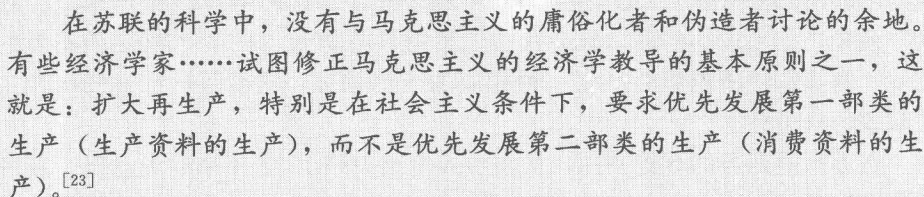 在苏联的科学中，没有与马克思主义的庸俗化者和伪造者讨论的余地。
有些经济学家……试图修正马克思主义的经济学教导的基本原则之一，这
就是：扩大再生产，特别是在社会主义条件下，要求优先发展第一部类的
生产（生产资料的生产），而不是优先发展第二部类的生产（消费资料的生
产）。[23]